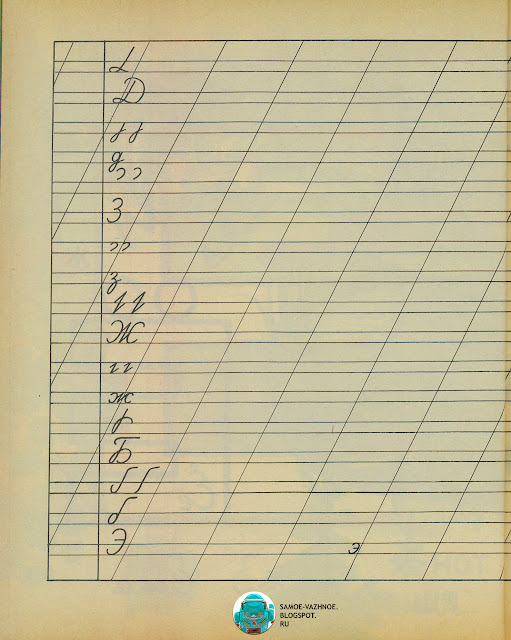 Д
д
З
з
Ж
ж
Б
б
Э э
SAMOE-VAZHNOE.
BLOGSPOT.
RU